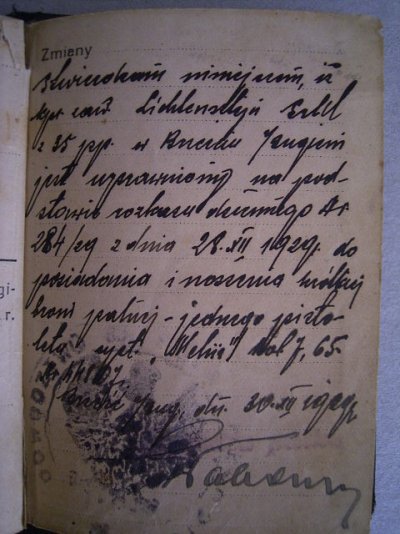 Zmiany
Stwierdzam niniejszem, iż
kpr. zaw. Lichtenstejn
z 35 p.p. w Brześciu
jest uprawniony na pod-
stawie rozkazu dziennego Nr
284/29 z dnia 28.XII 1929. do
posiadania i noszenia krótkiej
broni palnej - jednego pisto-
letu syst. kal 7,65.
dn. 30.XII 1929r.
gi-
r.